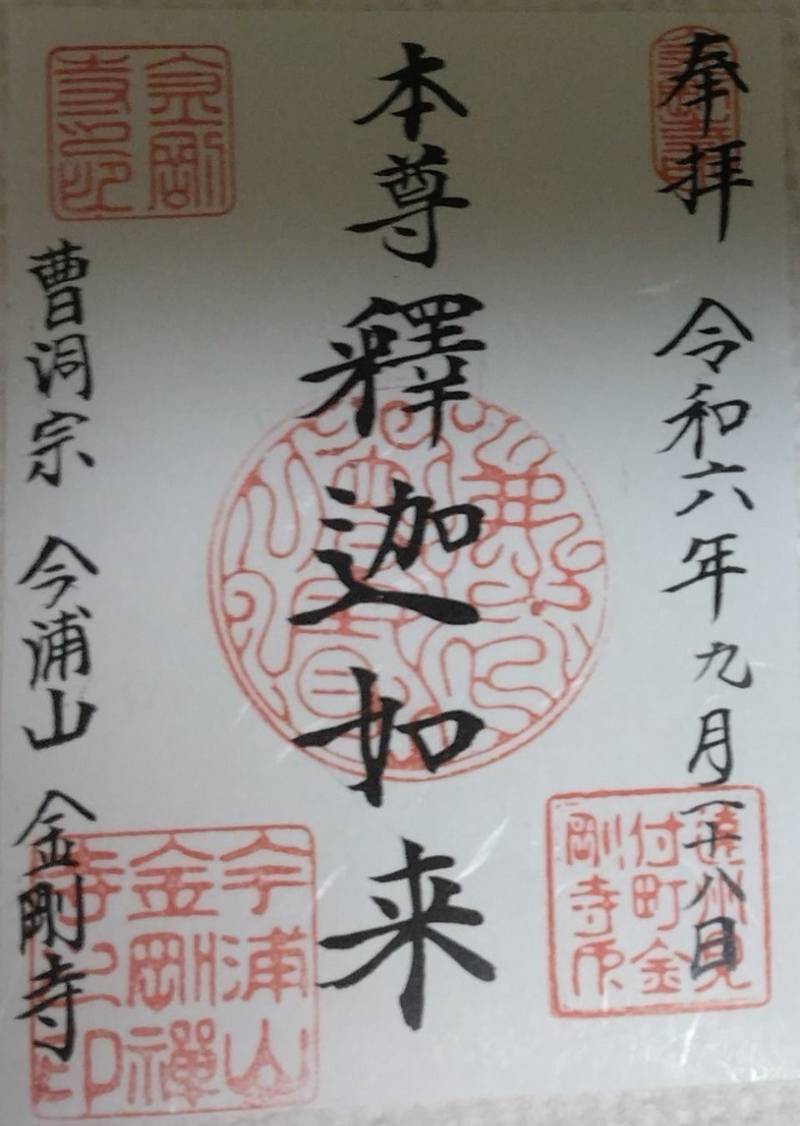 奉拝 令和六年九月二十八日
本尊 釋迦如来
曹洞宗 今浦山 金剛寺
遠州見
付町金
剛寺印
金剛
寺印
今浦山
金剛禪
寺之印